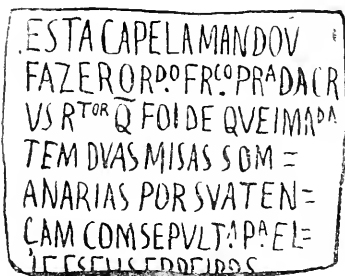 ESTA CAPELA MANDOV
FAZER O Rᴰ.ᴼ FRᶜ.ᴼ PRᴬ DA CR
VS Rᵀᴼᴿ Q̅ FOI DE QVEIMAᴰᴬ
TEM DVAS MISAS SOM =
ANARIAS POR SVA TEN=
CAM COM SEPVLTᴬ. Pᴬ EL=